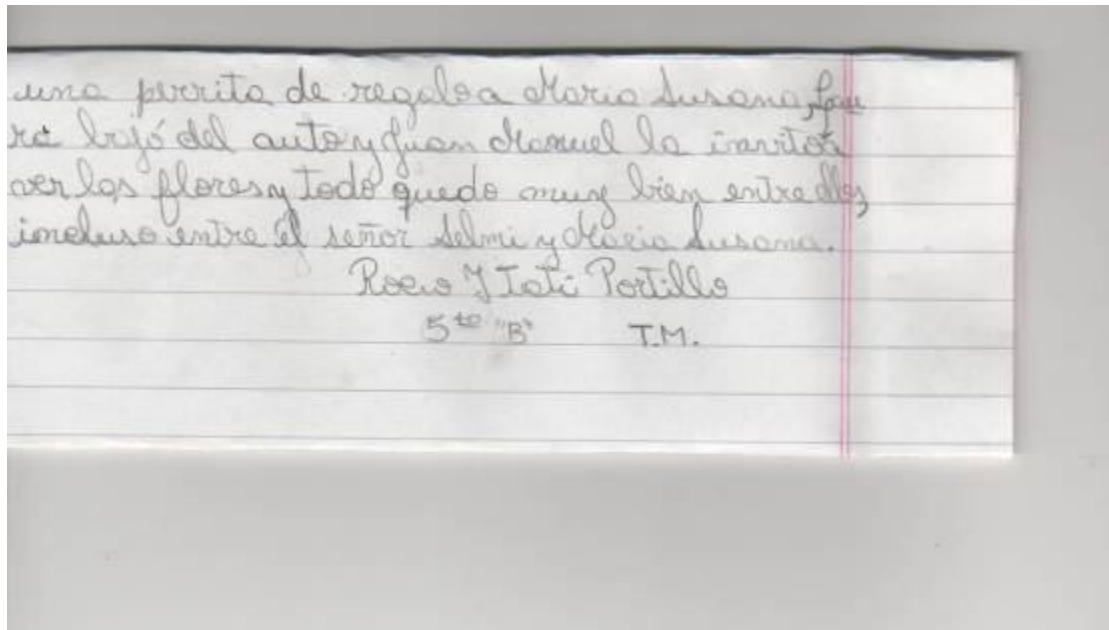 una perrita de regalo a Maria Susana, Lau
ra bajó del auto y Juan Manuel la invitó a
ver las flores y todo quedo muy bien entre ellos,
incluso entre el señor Selmi y Maria Susana.
Rocio Y Tati Portillo
5to "B" T.M.